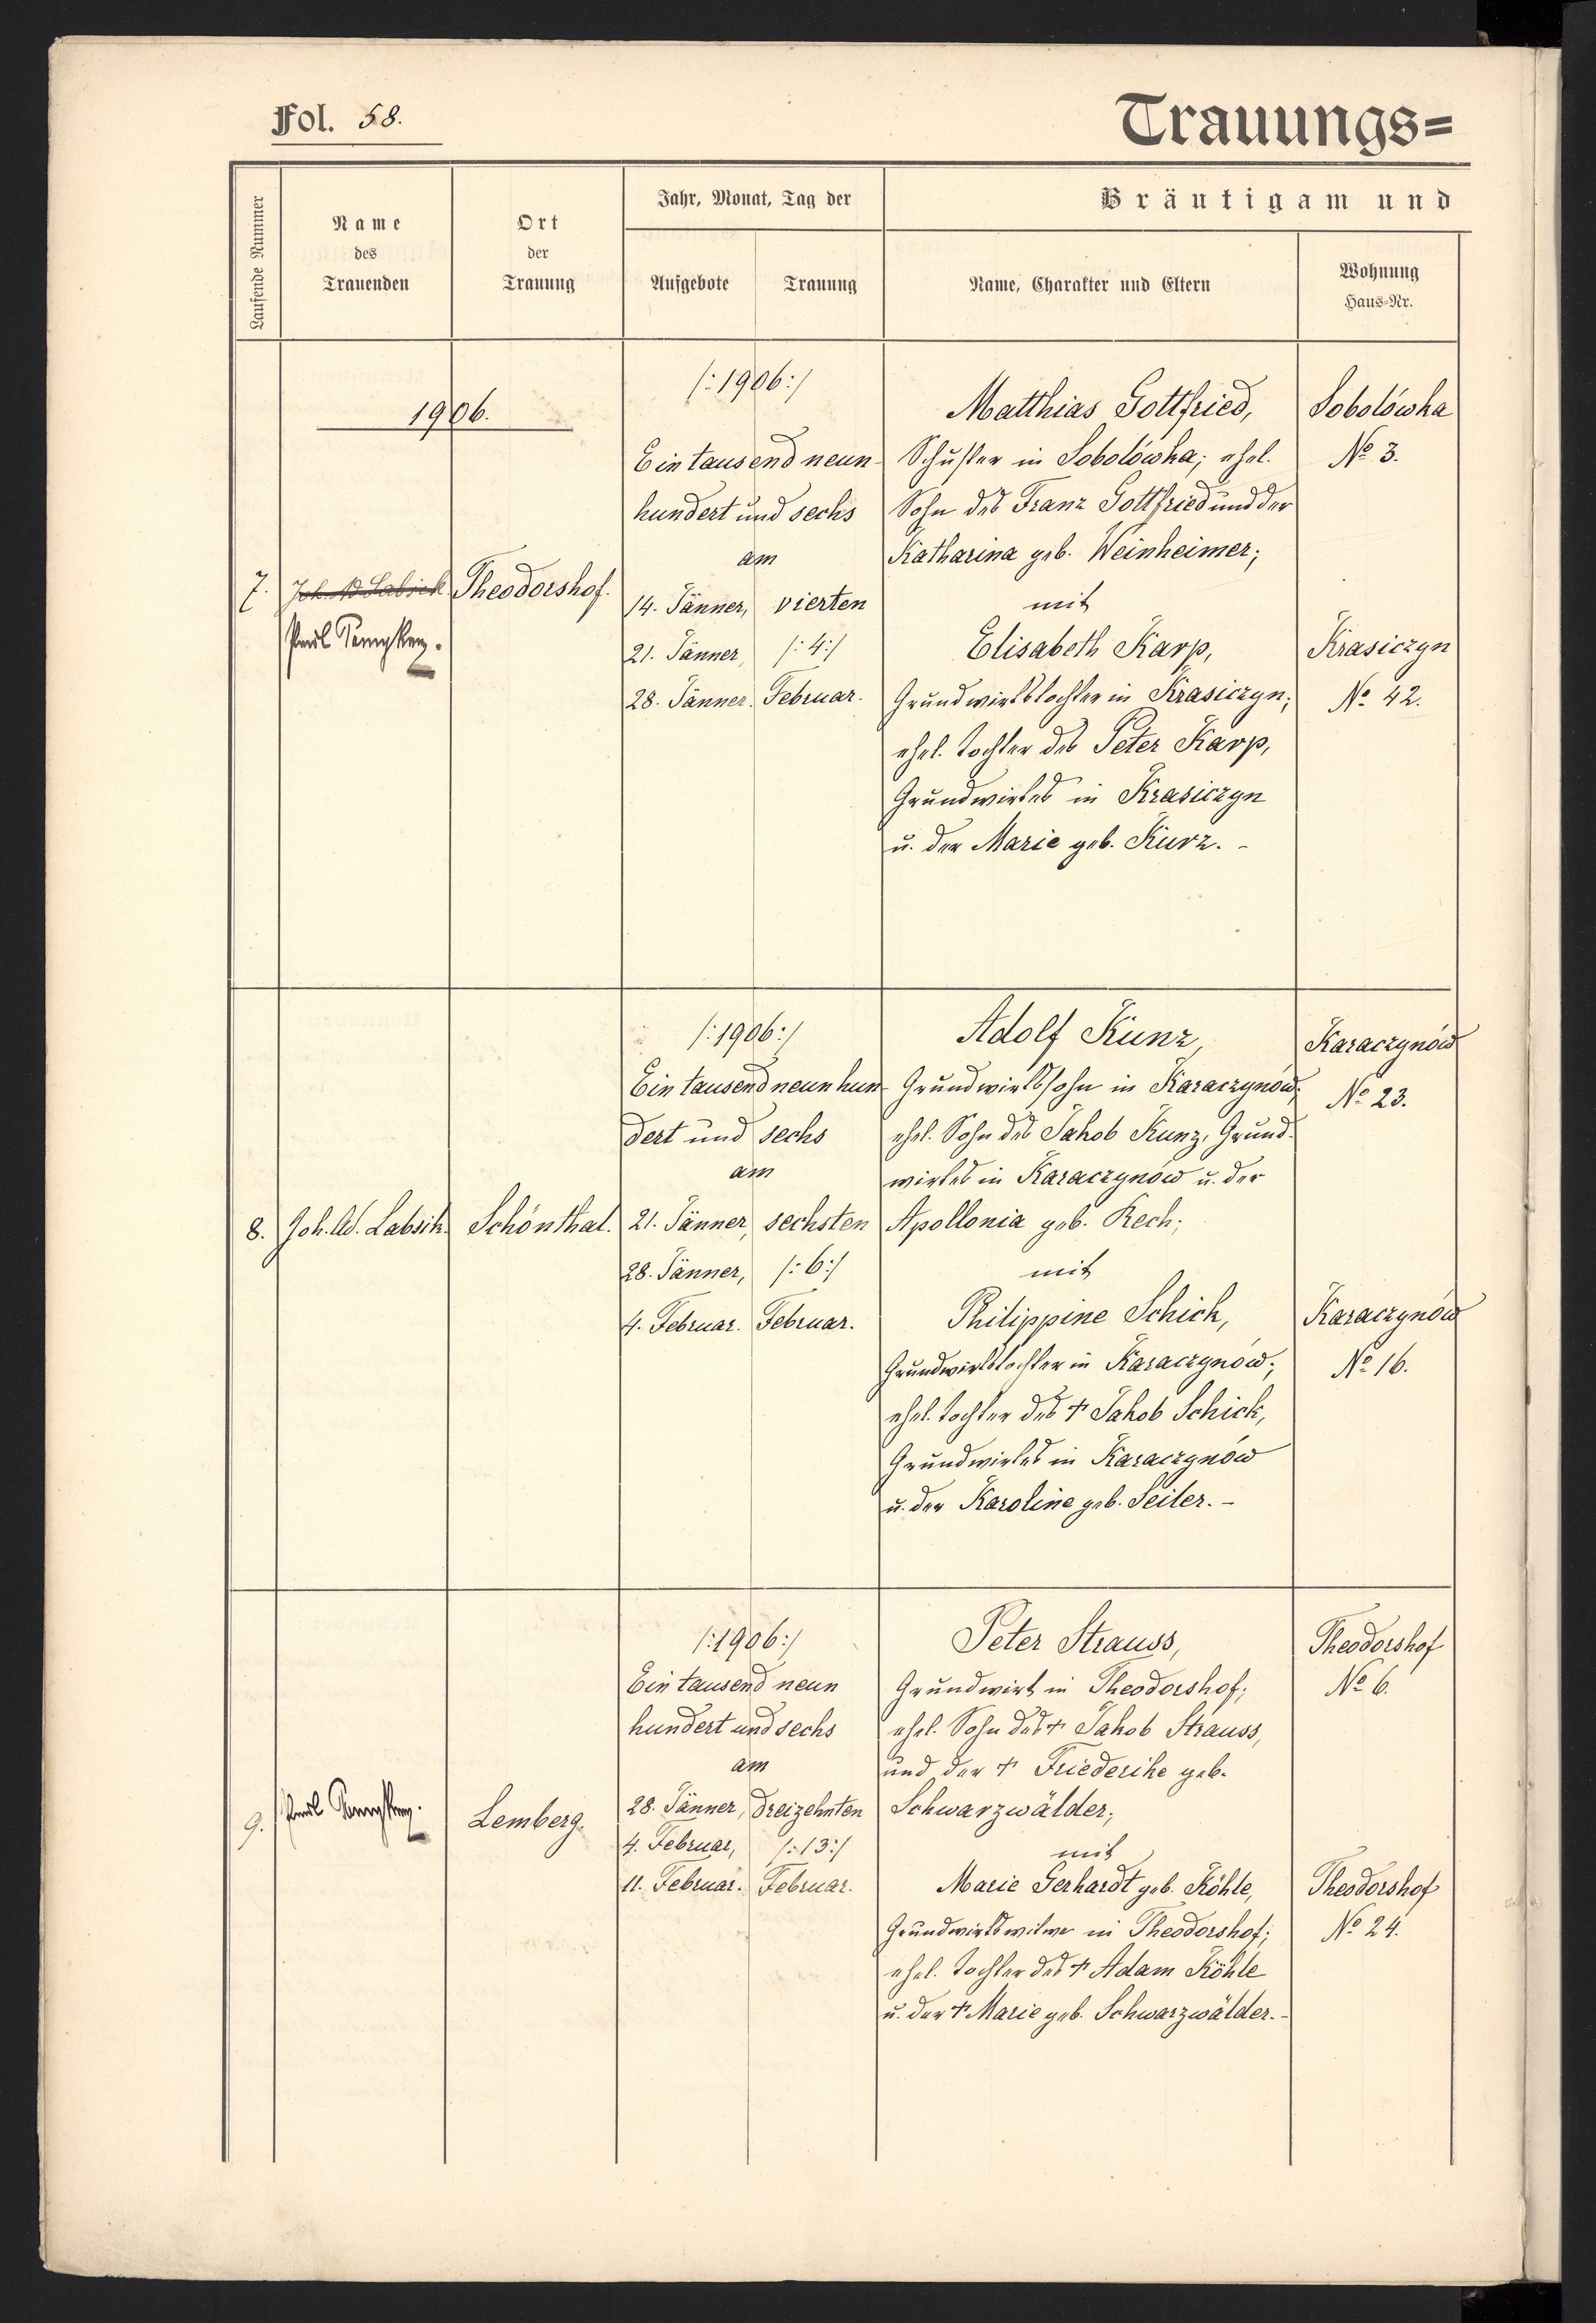 Fol. 58.
Trauungs=
Laufende Nummer
Name
des
Trauenden
Ort
der
Trauung
Jahr, Monat, Tag der
Aufgebote
Trauung
Bräutigam und
Name, Charakter und Eltern
Wohnung
Haus-Nr.
1906.
7.
Joh. Ad. Labsik.
Paul
Theodorshof.
/:1906:/
Ein tausend neun-
hundert und sechs
am
14. Jänner, vierten
21. Jänner, /:4:/
28. Jänner. Februar.
Matthias Gottfried,
Schuster in Sobolówka; ehel.
Sohn des Franz Gottfried und der
Katharina geb. Weinheimer;
mit
Elisabeth Karp,
Grundwirtstochter in Krasiczyn;
ehel. Tochter des Peter Karp,
Grundwirtes in Krasiczyn
u. der Marie geb. Kurz. -
Sobolówka
No 3.
Krasiczyn
No 42.
8.
Joh. Ad. Labsik.
Schönthal.
/:1906:/
Ein tausend neunhun-
dert und sechs
am
21. Jänner, sechsten
28. Jänner, /:6:/
4. Februar. Februar.
Adolf Kunz,
Grundwirtssohn in Karaczynów;
ehel. Sohn des Jakob Kunz, Grund-
wirtes in Karaczynów u. der
Apollonia geb. Rech;
mit
Philippine Schick,
Grundwirtstochter in Karaczynów;
ehel. Tochter des † Jakob Schick,
Grundwirtes in Karaczynów
u. der Karoline geb. Seiler. -
Karaczynów
No 23.
Karaczynów
No 16.
9.
Paul
Lemberg.
/:1906:/
Ein tausend neun
hundert und sechs
am
28. Jänner, dreizehnten
4. Februar, /:13:/
11. Februar. Februar.
Peter Strauss,
Grundwirt in Theodorshof;
ehel. Sohn des † Jakob Strauss,
und der † Friederike geb.
Schwarzwälder;
mit
Marie Gerhardt geb. Köhle,
Grundwirtswitwe in Theodorshof;
ehel. Tochter des † Adam Köhle
u. der † Marie geb. Schwarzwälder. -
Theodorshof
No 6.
Theodorshof
No 24.